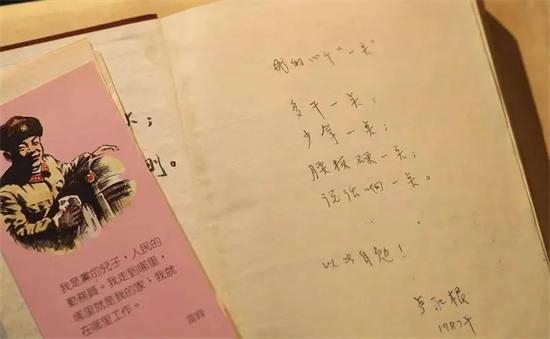 我是黨的兒子，人民的
勤務員。我走到哪里，
哪里就是我的家，我就
在哪里工作。
雷鋒
我的四个"一点"
多干一点；
少拿一点；
腰板硬一点；
说话响一点。
以此自勉！
1987年